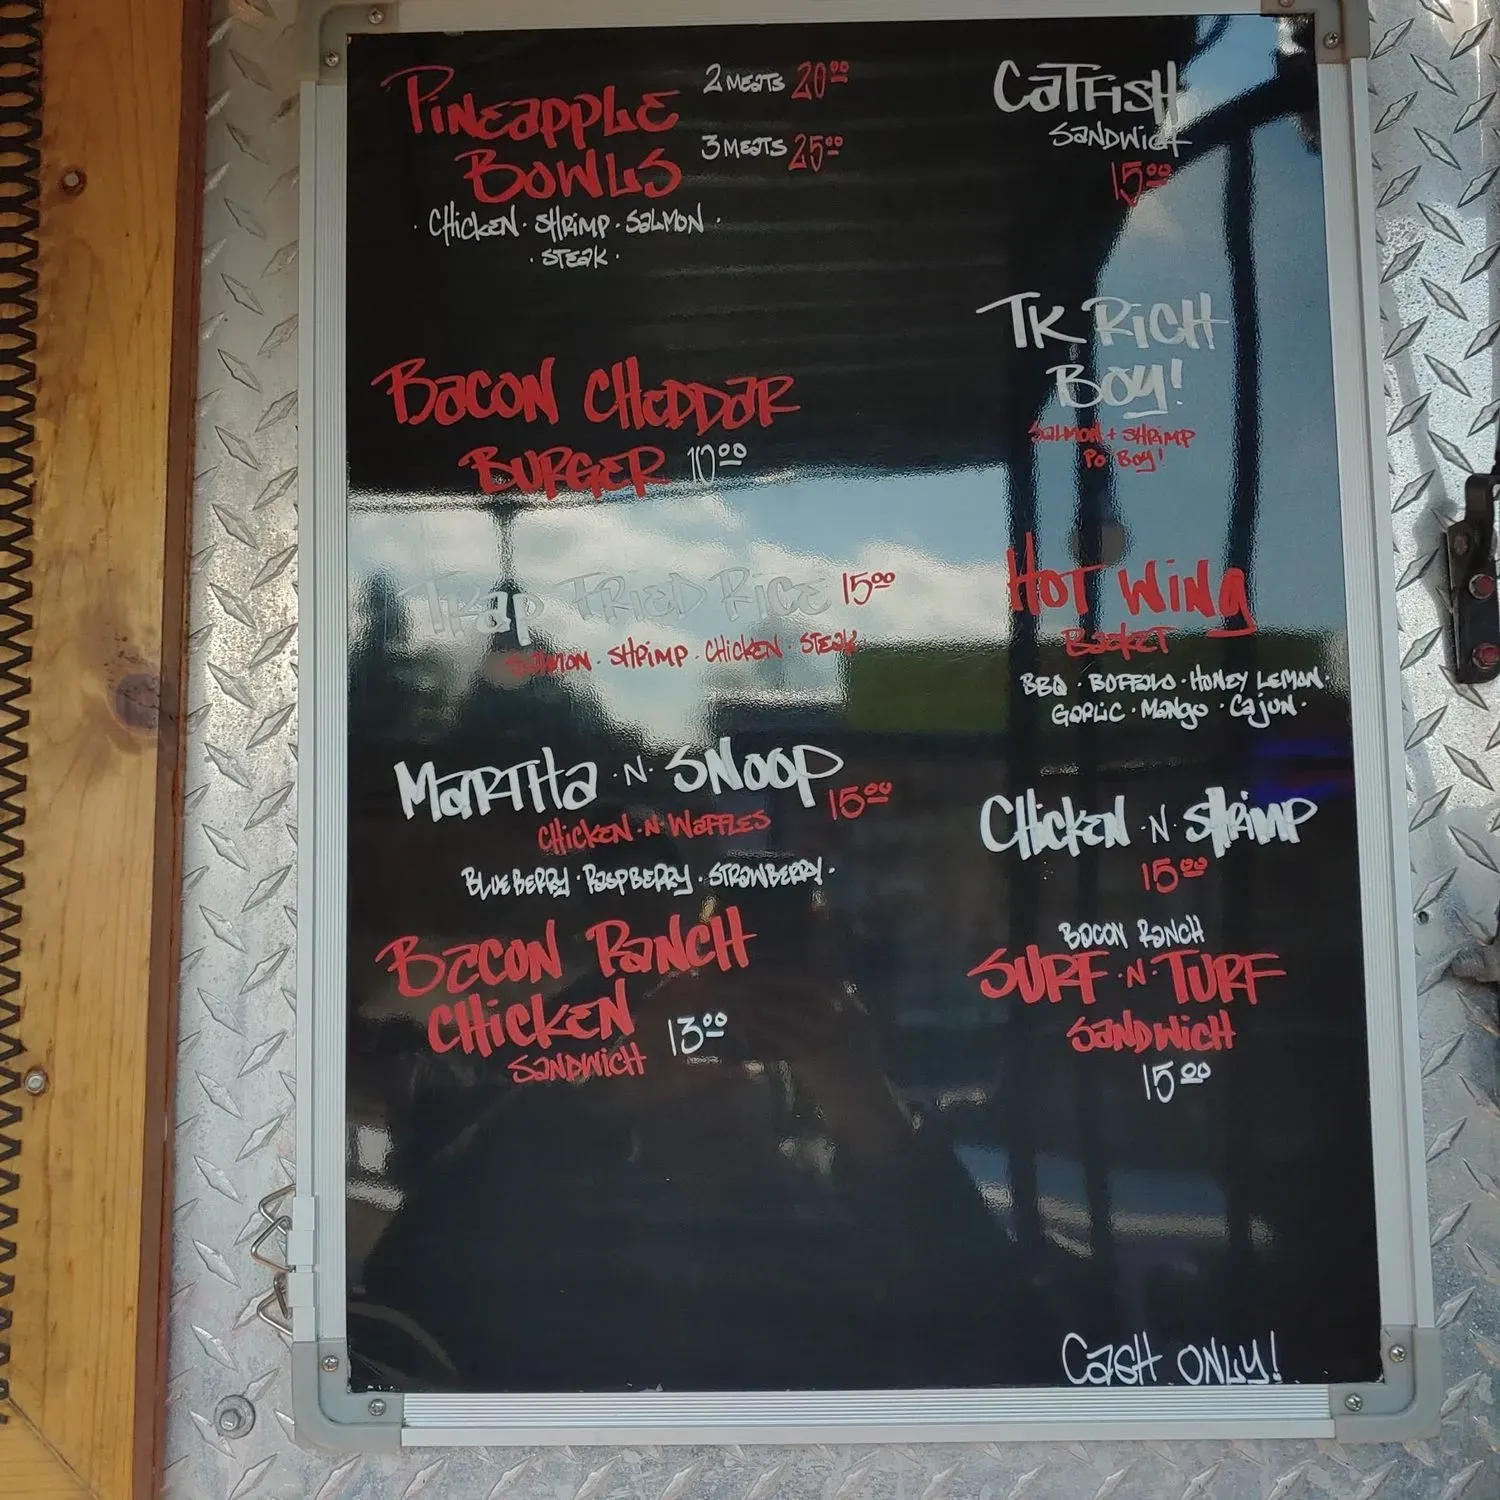 PINEAPPLE
BOWLS
2 MEATS 20.00
3 MEATS 25.00
· CHICKEN · SHRIMP · SALMON ·
· STEAK ·
BACON CHEDDAR
BURGER 10.00
TRAP FRIED RICE 15.00
SALMON · SHRIMP · CHICKEN · STEAK
MARTHA · N · SNOOP
15.00
CHICKEN · N · WAFFLES
BLUEBERRY · RASPBERRY · STRAWBERRY ·
BACON RANCH
CHICKEN
SANDWICH
13.00
CATFISH
SANDWICH
15.00
TK RICH
BOY!
SALMON + SHRIMP
PO BOY!
HOT WING
BASKET
BBQ · BUFFALO · HONEY LEMON ·
GARLIC · MANGO · CAJUN ·
CHICKEN · N · SHRIMP
15.00
BACON RANCH
SURF · N · TURF
SANDWICH
15.00
CASH ONLY!